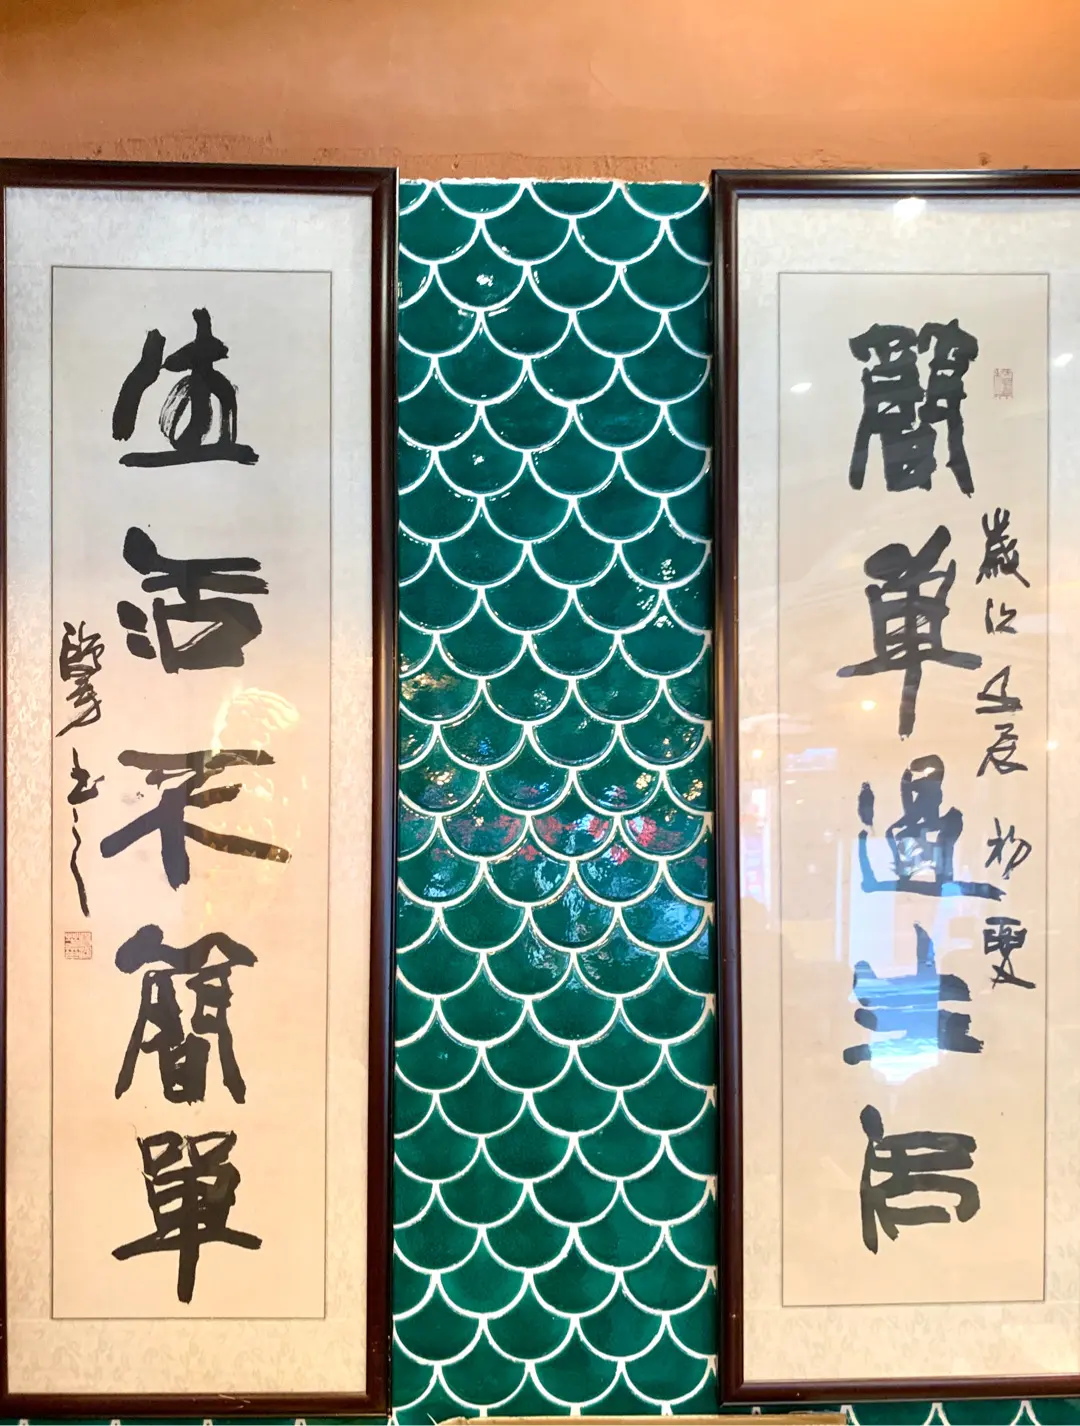 簡單過生活
歲次壬辰初夏
生活不簡單
書之